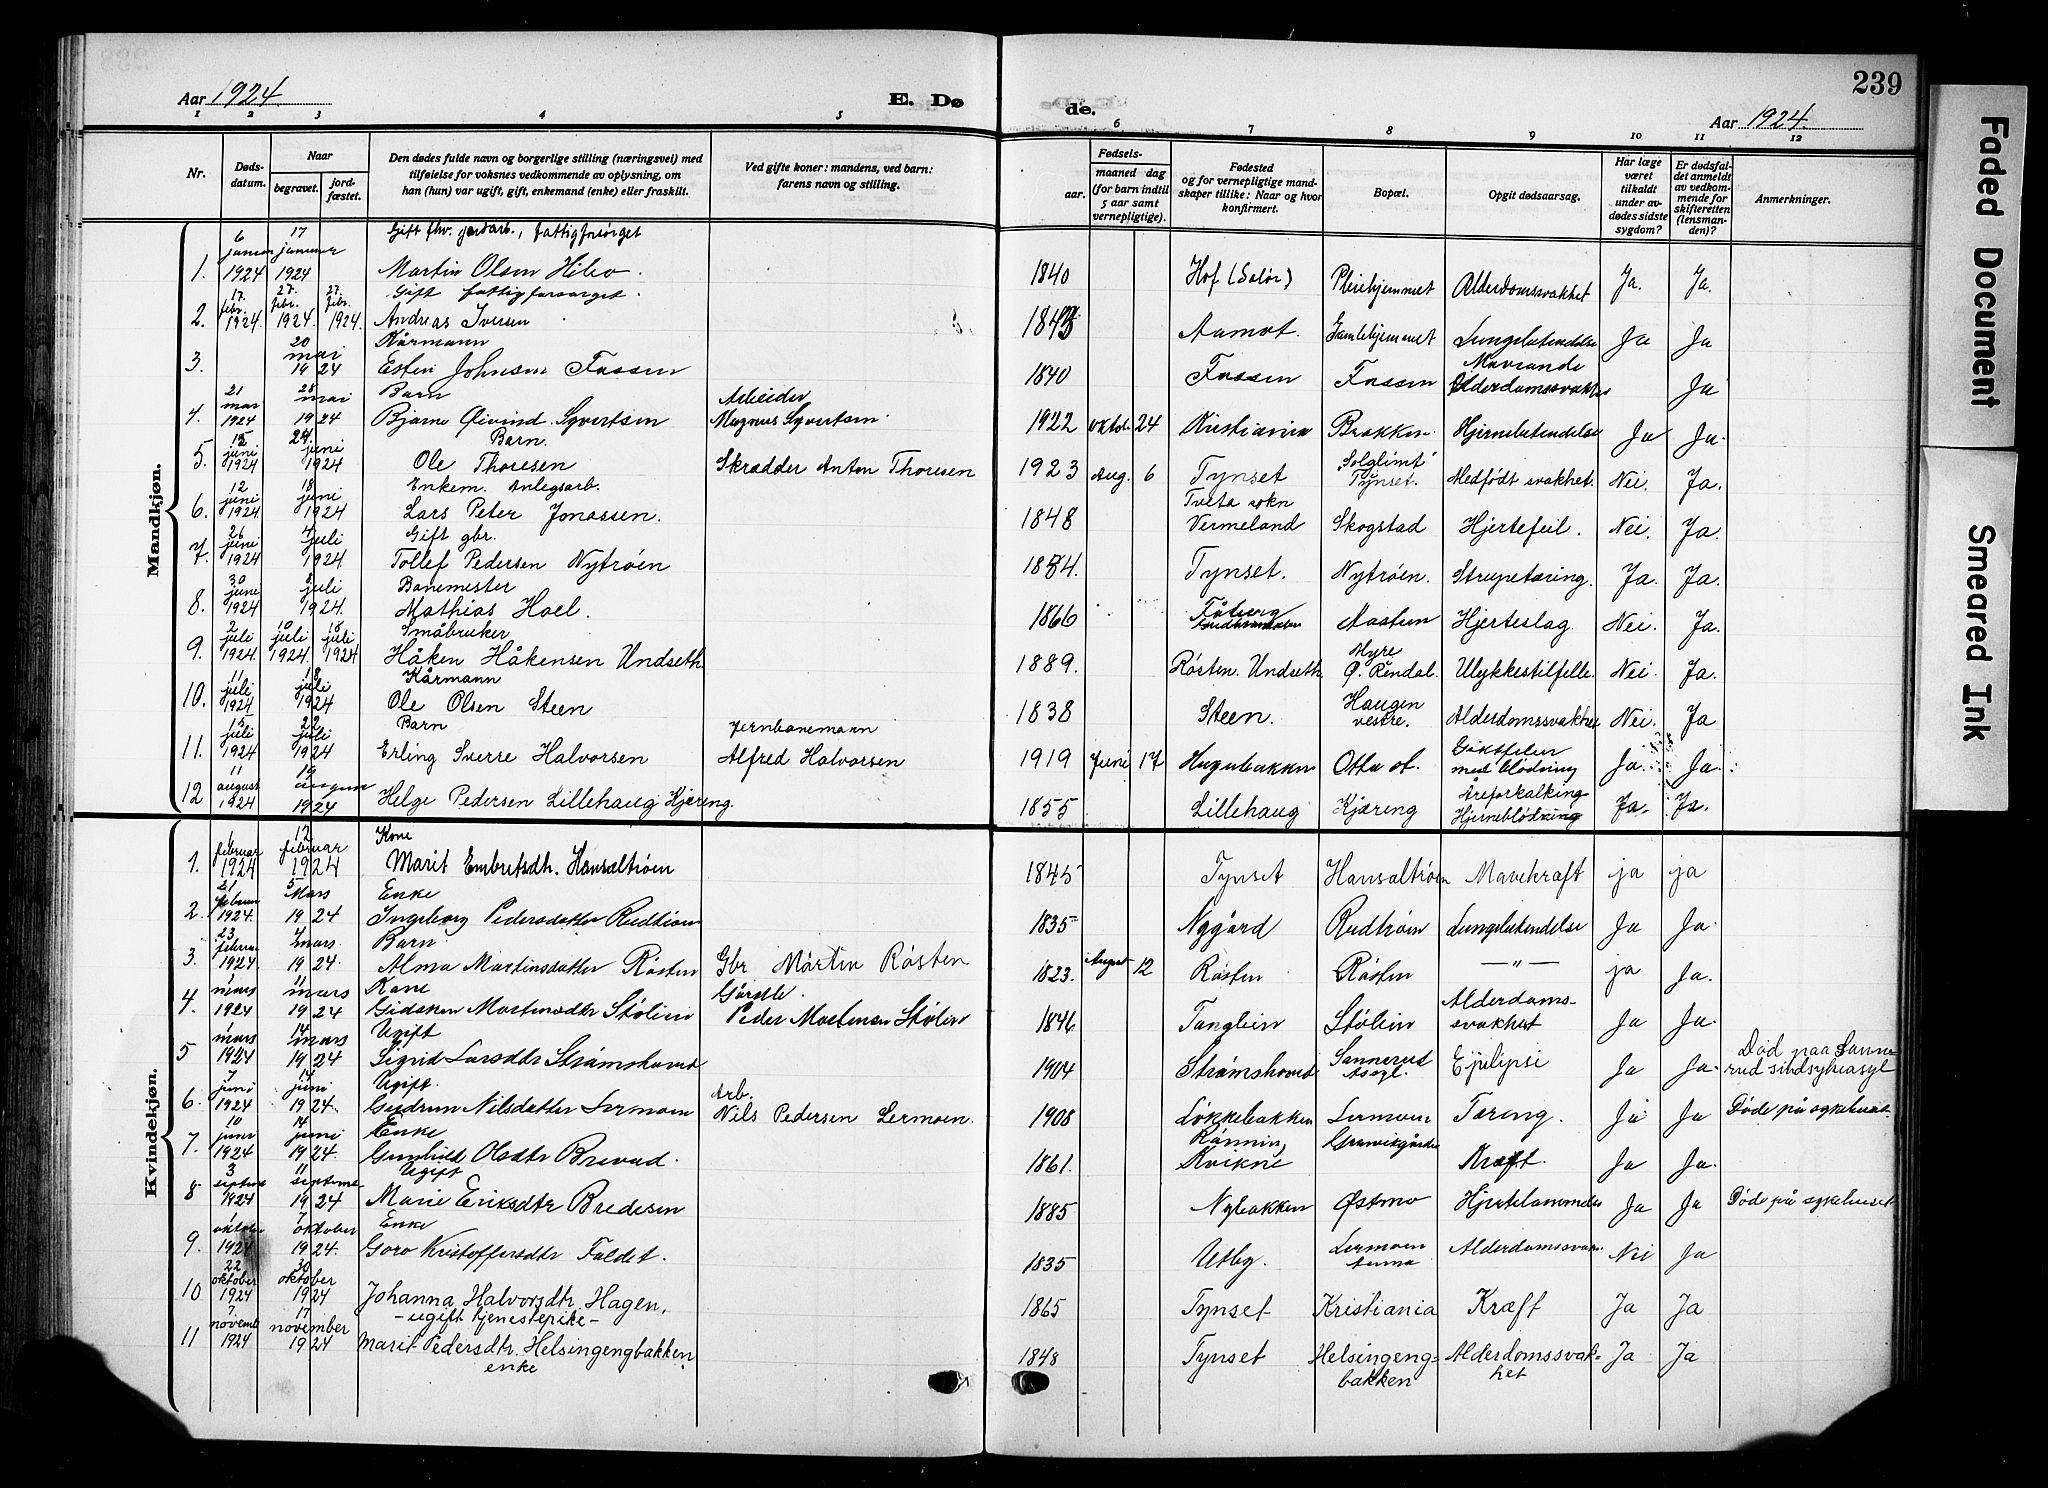 239
Aar 1924.
E. Dø
de.
Aar 1924.
1 2 3 4 5 6 7 8 9 10 11 12
Nr.
Døds-
datum.
Naar
begravet.
jord-
fæstet.
Den dødes fulde navn og borgerlige stilling (næringsvei) med
tilføielse for voksnes vedkommende av oplysning, om
han (hun) var ugift, gift, enkemand (enke) eller fraskilt.
Ved gifte koner: mandens, ved barn:
farens navn og stilling.
Fødsels-
aar.
maaned dag
(for barn indtil
5 aar samt
vernepligtige).
Fødested
og for vernepligtige mand-
skaper tillike: Naar og hvor
konfirmert.
Bopæl.
Opgit dødsaarsag.
Har læge
været
tilkaldt
under av-
dødes sidste
sygdom?
Er dødsfal-
det anmeldt
av vedkom-
mende for
skifteretten
(lensman-
den)?
Anmerkninger.
Mandkjøn.
6 17 Gift fhv. jordarb., fattigforsørget
januar januar
1. 1924 1924 Martin Olsen 1840 Hof (Solør) Pleiehjemmet Alderdomssvakhet Ja. Ja.
17. 27. 27. Gift fattigforsørget.
febr. febr. febr.
2. 1924. 1924. 1924. Andreas Iversen Aamot. Gamlehjemmet Lungebetendelse Ja Ja
20 Kårmann
mai
3. 1924 Esten Johnsen Fossen 1840 Fossen Fossen Alderdomssvakhet Ja
21 28 Barn Arbeider
mai mai
4. 1924 1924 Bjarne Øivind Syvertsen Magnus Syvertsen 1922 oktob. 24 Kristiania Brekken Hjernebetendelse Ja Ja.
15 24. Barn.
juni juni
5. 1924 1924 Ole Thoresen Skrædder Anton Thoresen 1923 Aug. 6 Tynset "Solglimt" Tynset. Medfødt svakhet. Nei. Ja.
12 18 Enkem. Anlegsarb.
juni juni
6. 1924. 1924 Lars Peter Jonassen. 1848 Tveta sokn Vermeland Skogstad Hjertefeil. Nei. Ja.
26 4 Gift gbr.
juni juli
7. 1924 1924. Tollef Pedersen Nytrøen 1854. Tynset. Nytrøen. Strupetæring. Ja. Ja.
30 8 Banemester
juni juli
8. 1924 1924. Mathias Hoel. 1866 Fåberg Aasteen Hjerteslag. Nei. Ja.
2 10 18 Småbruker
juli juli juli
9. 1924. 1924. 1924 Håken Håkensen Undseth 1889. Røsten. Undseth Myre Ø. Rendal. Ulykkestilfelle. Nei. Ja.
11 18 Kårmann
juli juli
10. 1924 1924 Ole Olsen Steen 1838 Steen. Haugen vestre. Alderdomssvakhet Nei. Ja
15 22 Barn Jernbanemann
juli juli
11. 1924 1924 Erling Sverre Halvorsen Alfred Halvorsen 1919 Juni 17 Haugubakken Otta st. Giktfeber med blødning Ja. Ja.
11 19
august august
12 1924 1924 Helge Pedersen Lillehaug Kjæreng. 1855 Lillehaug Kjæreng Åreforkalking Hjerneblødning Ja. Ja.
Kvindekjøn.
1 12 Kone
februar februar
1. 1924 1924 Marit Embretsdtr. Hansaltrøen 1845 Tynset Hansaltrøen Mavekræft ja ja
21 5 Enke
februar Mars
2. 1924. 1924 Ingeborg Pedersdatter Rudtrøen 1835 Nygård Rudtrøen Lungebetendelse Ja Ja.
23 4 Barn
februar mars.
3. 1924. 1924. Alma Martinsdatter Røsten Gbr Martin Røsten 1823. August 12 Røsten Røsten —"— ja Ja.
1 11 Kone Gårdbr.
mars mars
4. 1924 1924 Mortensdtr Stølien Peder Mortensen Stølen 1846 Tanglien Stølien Alderdoms- svakhet Ja Ja.
1 14 Ugift
mars mars
5 1924 1924 Sigrid Larsdtr Strømshoved 1904 Strømshoved Sannerud Asyl. Epilepsi Ja Ja. Død paa Sanne- rud sindsykeasyl
7 14 Ugift. Arb.
juni juni
6. 1924 1924. Gudrun Nilsdatter Lermoen Nils Pedersen Lermoen. 1908 Løkkebakken Lermoen Tæring. Ja Ja Døde på sykehuset
10 14 Enke
juni juni
7. 1924 1924. Gunhild Olsdtr Brevad. 1861. Rønning, Kvikne Kræft. Ja Ja.
3 11 Ugift
septbr septembr
8 1924 1924 Marie Eriksdtr Bredesen 1885 Nybakken Østmo Hjertelammelse Ja Ja Døde på sykehuset
1 7 Enke
oktober oktober
9. 1924 1924. Goro Kristoffersdtr Faldet. 1835 Utby. Lermoen Alderdomssvakhet Nei Ja
22 30
oktober oktober
10 1924 1924 Johanna Halvorsdtr. Hagen, 1865 Tynset Kristiania Kræft Ja Ja
- ugift tjenestepike -
7. 17
november november
11 1924 1924 Marit Pedersdtr. Helsingengbakken, 1848 Tynset Helsingeng- bakken Alderdomssvak- het Ja Ja
enke
Faded Document
Smeared Ink